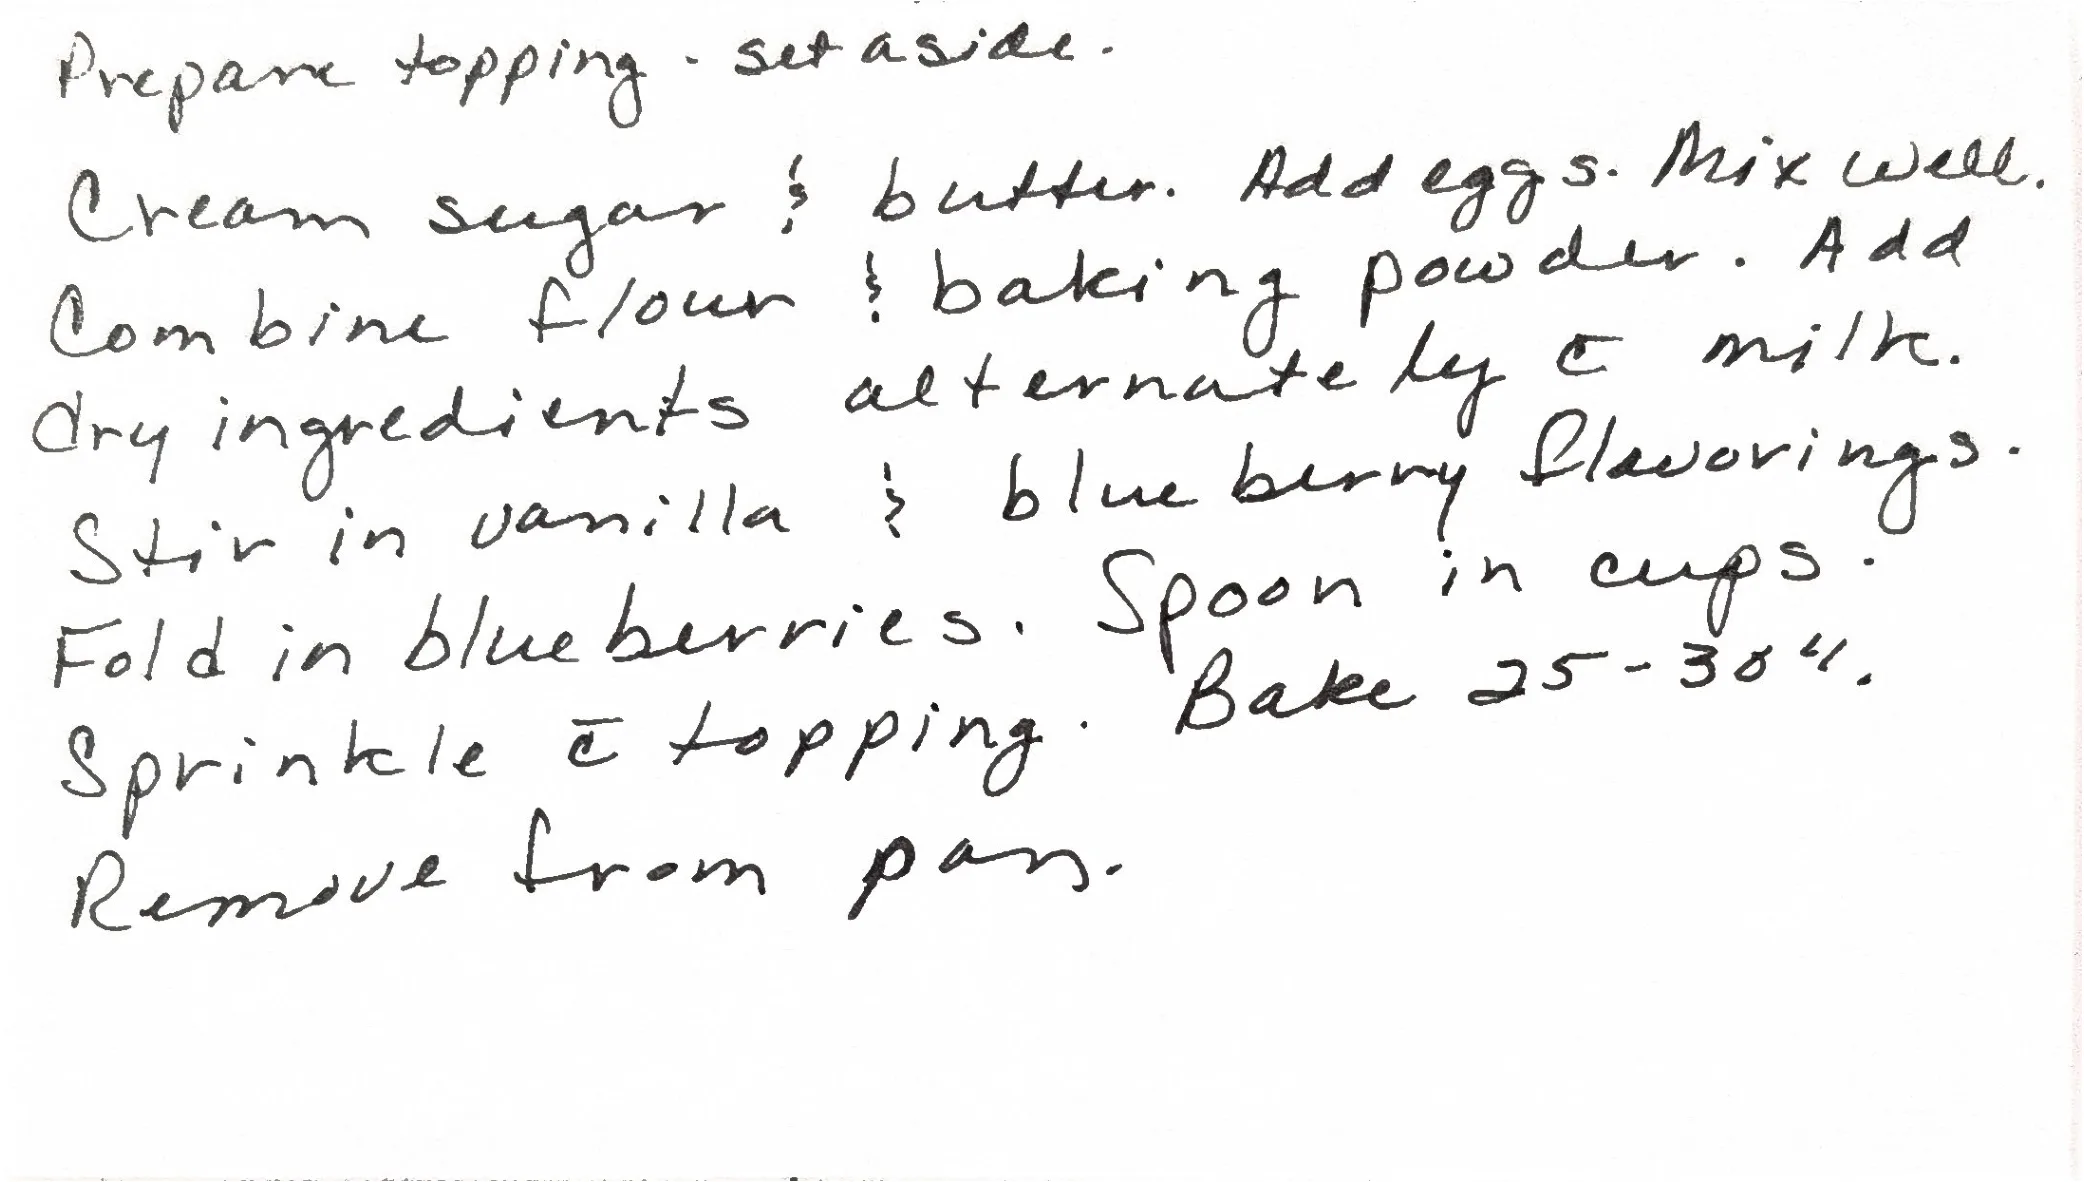 Prepare topping - set aside.
Cream sugar & butter. Add eggs. Mix well.
Combine flour & baking powder. Add
dry ingredients alternately c̄ milk.
Stir in vanilla & blueberry flavorings.
Fold in blueberries. Spoon in cups.
Sprinkle c̄ topping. Bake 25-30".
Remove from pan.